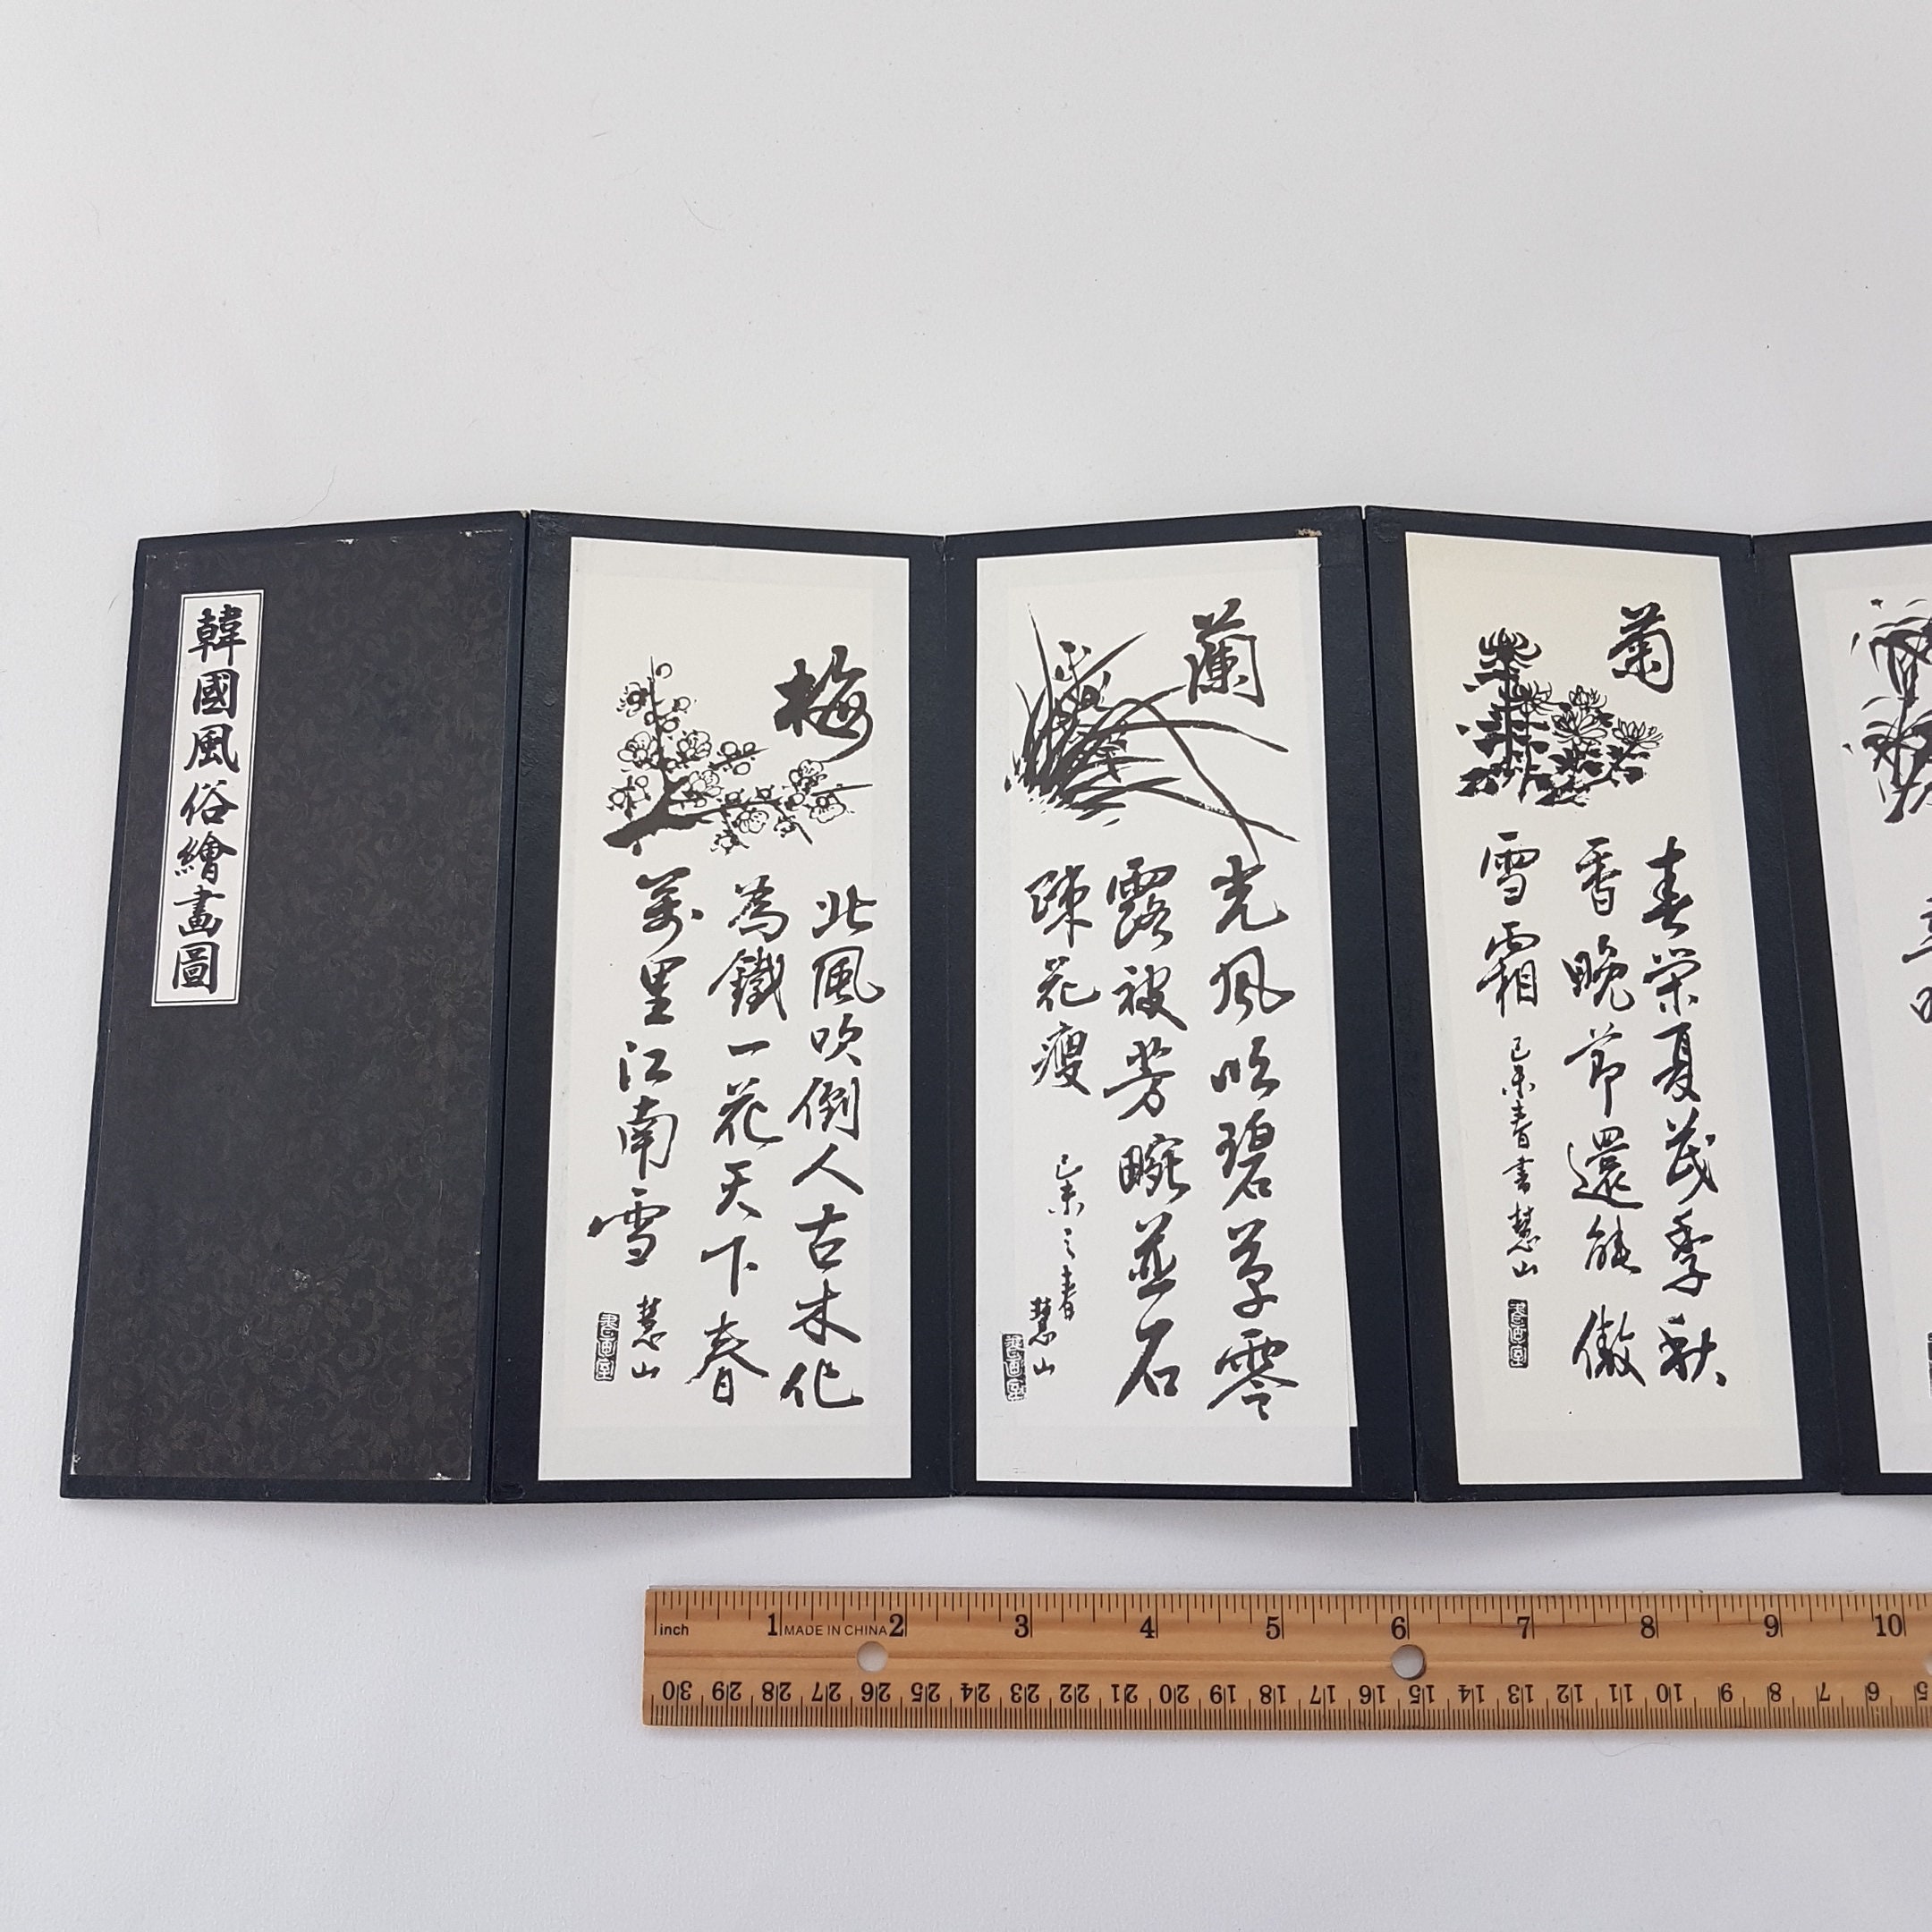 韓國風俗繪畫圖
梅
北風吹倒人古木化
為鐵一花天下春
萬里江南雪
慧山
蘭
光風吹碧草零
露被芳畹並石
疎花瘦
己未之春
慧山
菊
春榮夏茂季秋
香晚節還能傲
雪霜
己未春書慧山
inch 1 MADE IN CHINA 2 3 4 5 6 7 8 9 10
30 29 28 27 26 25 24 23 22 21 20 19 18 17 16 15 14 13 12 11 10 9 8 7 6 5